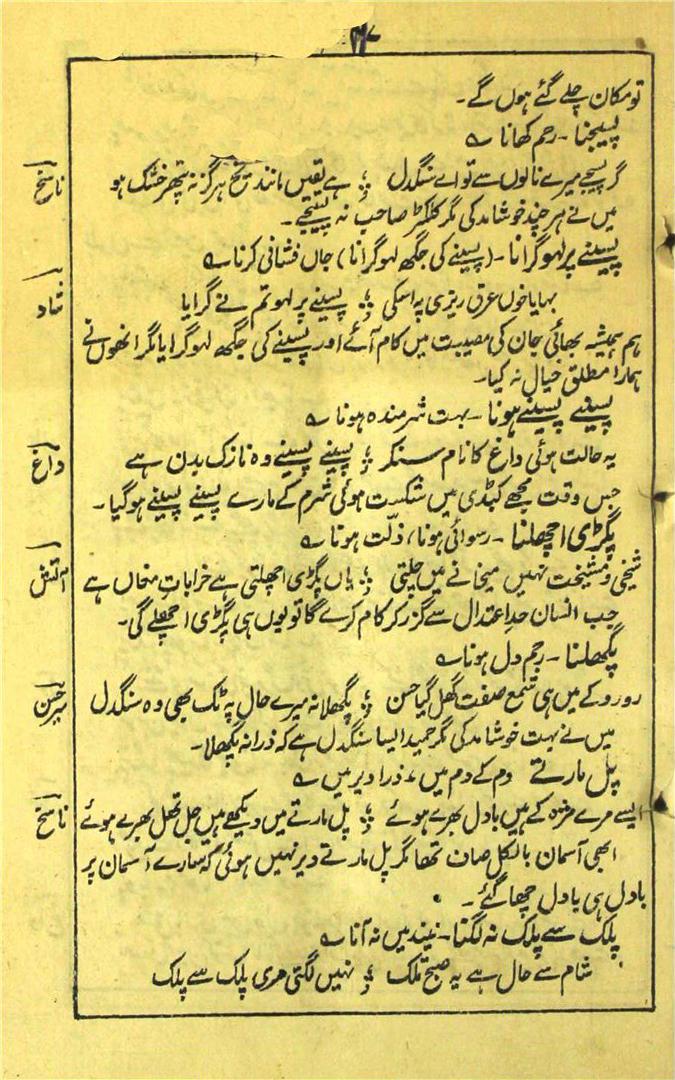 ۳۷
تو مکان چلے گئے ہوں گے۔
پسیجنا۔ رحم کھانا ؎
گر پسیجے میرے نالوں سے تو اے سنگدل ؛ ہے یقیں مانند یخ ہرگز نہ پتھر خشک ہو ناسخ
میں نے ہر چند خوشامد کی مگر کلکٹر صاحب نہ پسیجے۔
پسینے پر لہو گرانا۔ (پسینے کی جگھ لہو گرانا) جاں فشانی کرنا ؎
بہایا خوں عرق ریزی پہ اسکی ؛ پسینے پر لہو تم نے گرایا شاد
ہم ہمیشہ بھائی جان کی مصیبت میں کام آئے اور پسینے کی جگھ لہو گرایا مگر انھوں نے
ہمارا مطلق خیال نہ کیا۔
پسینے پسینے ہونا۔ بہت شرمندہ ہونا ؎
یہ حالت ہوئی داغ کا نام سنکر ؛ پسینے پسینے وہ نازک بدن ہے داغ
جس وقت مجھے کبڈی میں شکست ہوئی شرم کے مارے پسینے پسینے ہو گیا۔
پگڑی اچھلنا۔ رسوائی ہونا، ذلّت ہونا ؎
شیخی و مشیخت نہیں میخانے میں چلتی ؛ یاں پگڑی اچھلتی ہے خرابات مغاں ہے آتش
جب انسان حد اعتدال سے گزر کر کام کرے گا تو یوں ہی پگڑی اچھلے گی۔
پگھلنا۔ رحم دل ہونا ؎
رو رو کے میں ہی شمع صفت گھل گیا حسن ؛ پگھلا نہ میرے حال پہ ٹک بھی وہ سنگدل میر حسن
میں نے بہت خوشامد کی مگر حمید ایسا سنگدل ہے کہ ذرا نہ پگھلا۔
پل مارتے دم کے دم میں، ذرا دیر میں ؎
ایسے مرے مژہ کے ہیں بادل بھرے ہوئے ؛ پل مارتے میں دیکھے ہیں جل تھل بھرے ہوئے ناسخ
ابھی آسمان بالکل صاف تھا مگر پل مارتے دیر نہیں ہوئی کہ سارے آسمان پر
بادل ہی بادل چھا گئے۔
پلک سے پلک نہ لگنا۔ نیند میں نہ آنا ؎
شام سے حال ہے یہ صبح تلک ؛ نہیں لگتی مری پلک سے پلک